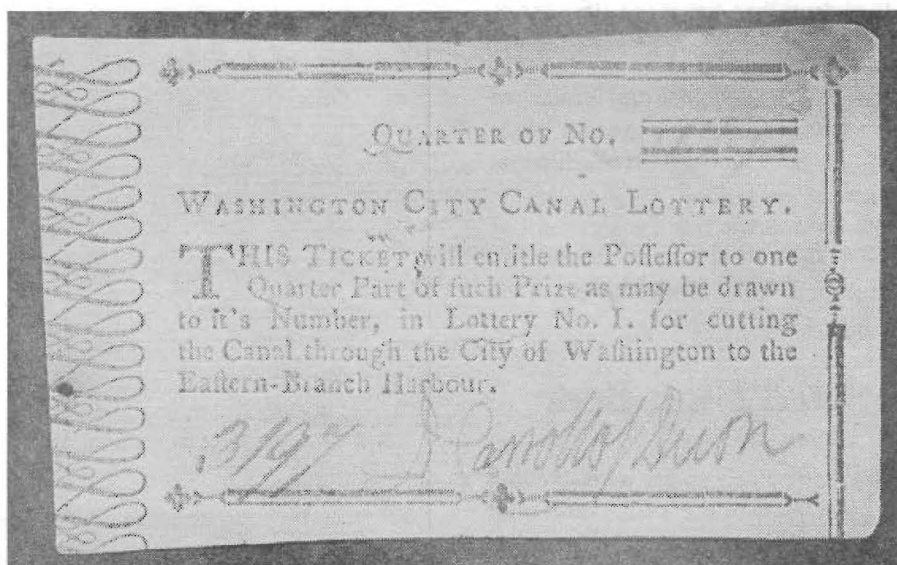 QUARTER OF No.
WASHINGTON CITY CANAL LOTTERY.
THIS TICKET will entitle the Poſſeſſor to one
Quarter Part of ſuch Prize as may be drawn
to it's Number, in Lottery No. I. for cutting
the Canal through the City of Waſhington to the
Eaſtern-Branch Harbour.
D Carroll of Dudn